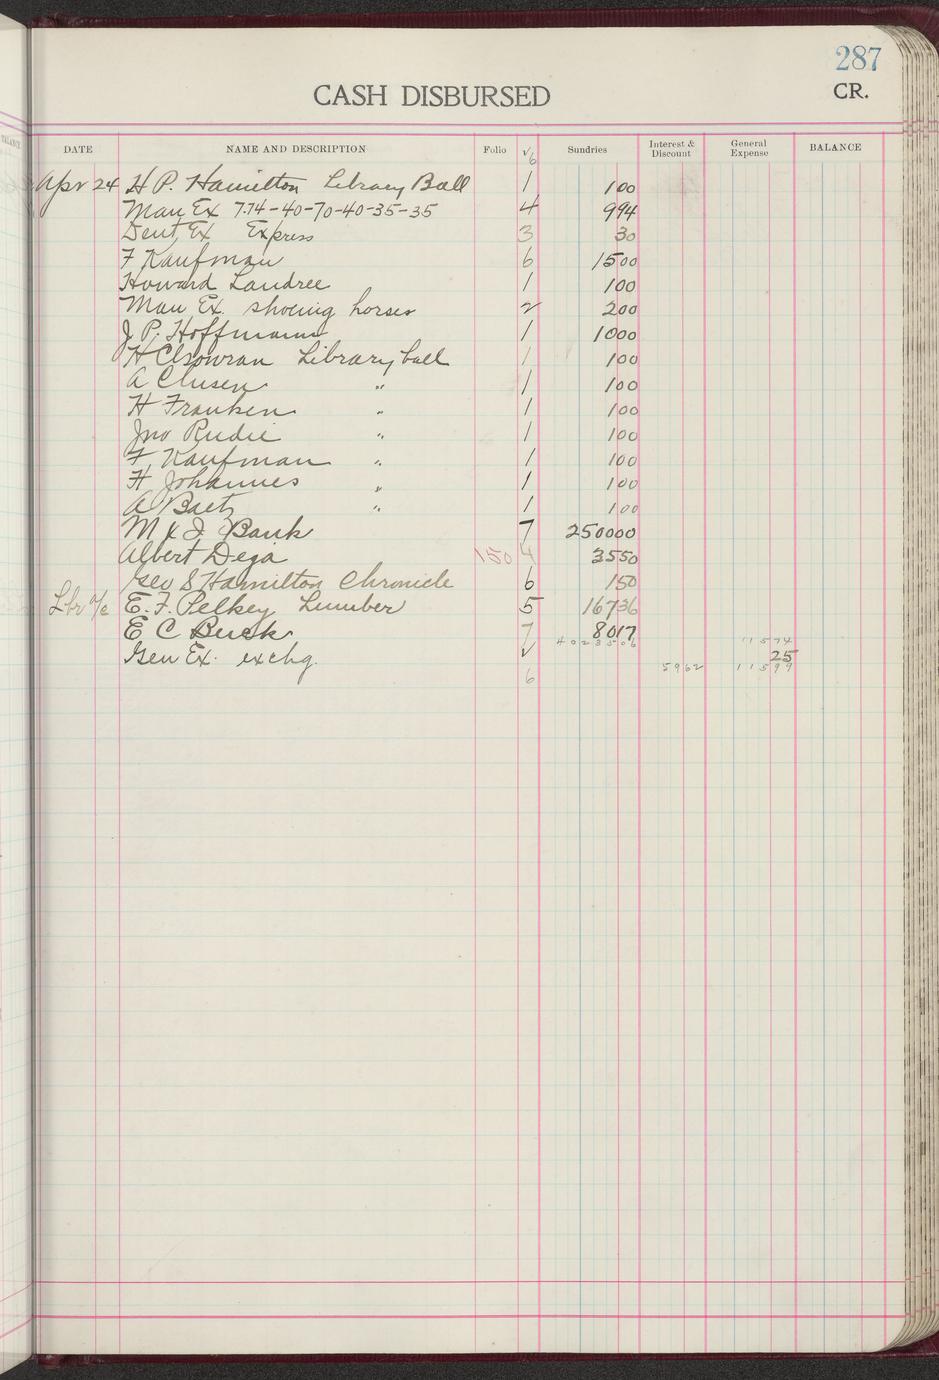 287
CASH DISBURSED CR.
DATE NAME AND DESCRIPTION Folio √6 Sundries Interest & Discount General Expense BALANCE
Apr 24 H P. Hamilton Library Ball 1 100
Man Ex 7.74-40-70-40-35-35 4 994
Dent, Ex Express 3 30
F Kaufman 6 1500
Howard Landree 1 100
Man Ex. shoeing horses 2 200
J P. Hoffmann 1 1000
H Library ball 1 100
A Clusen " 1 100
H Franken " 1 100
Jno Rudie " 1 100
F, Kaufman " 1 100
H Johannes " 1 100
A Baetz " 1 100
M & J Bank 7 250000
Albert Deja 150 4 3550
Geo S Hamilton Chronicle 6 150
Lbr a/c E. F. Pelkey Lumber 5 16736
E C Buck 7 8017
4023506 11574
Gen Ex. exchg. √ 25
6 5962 11599